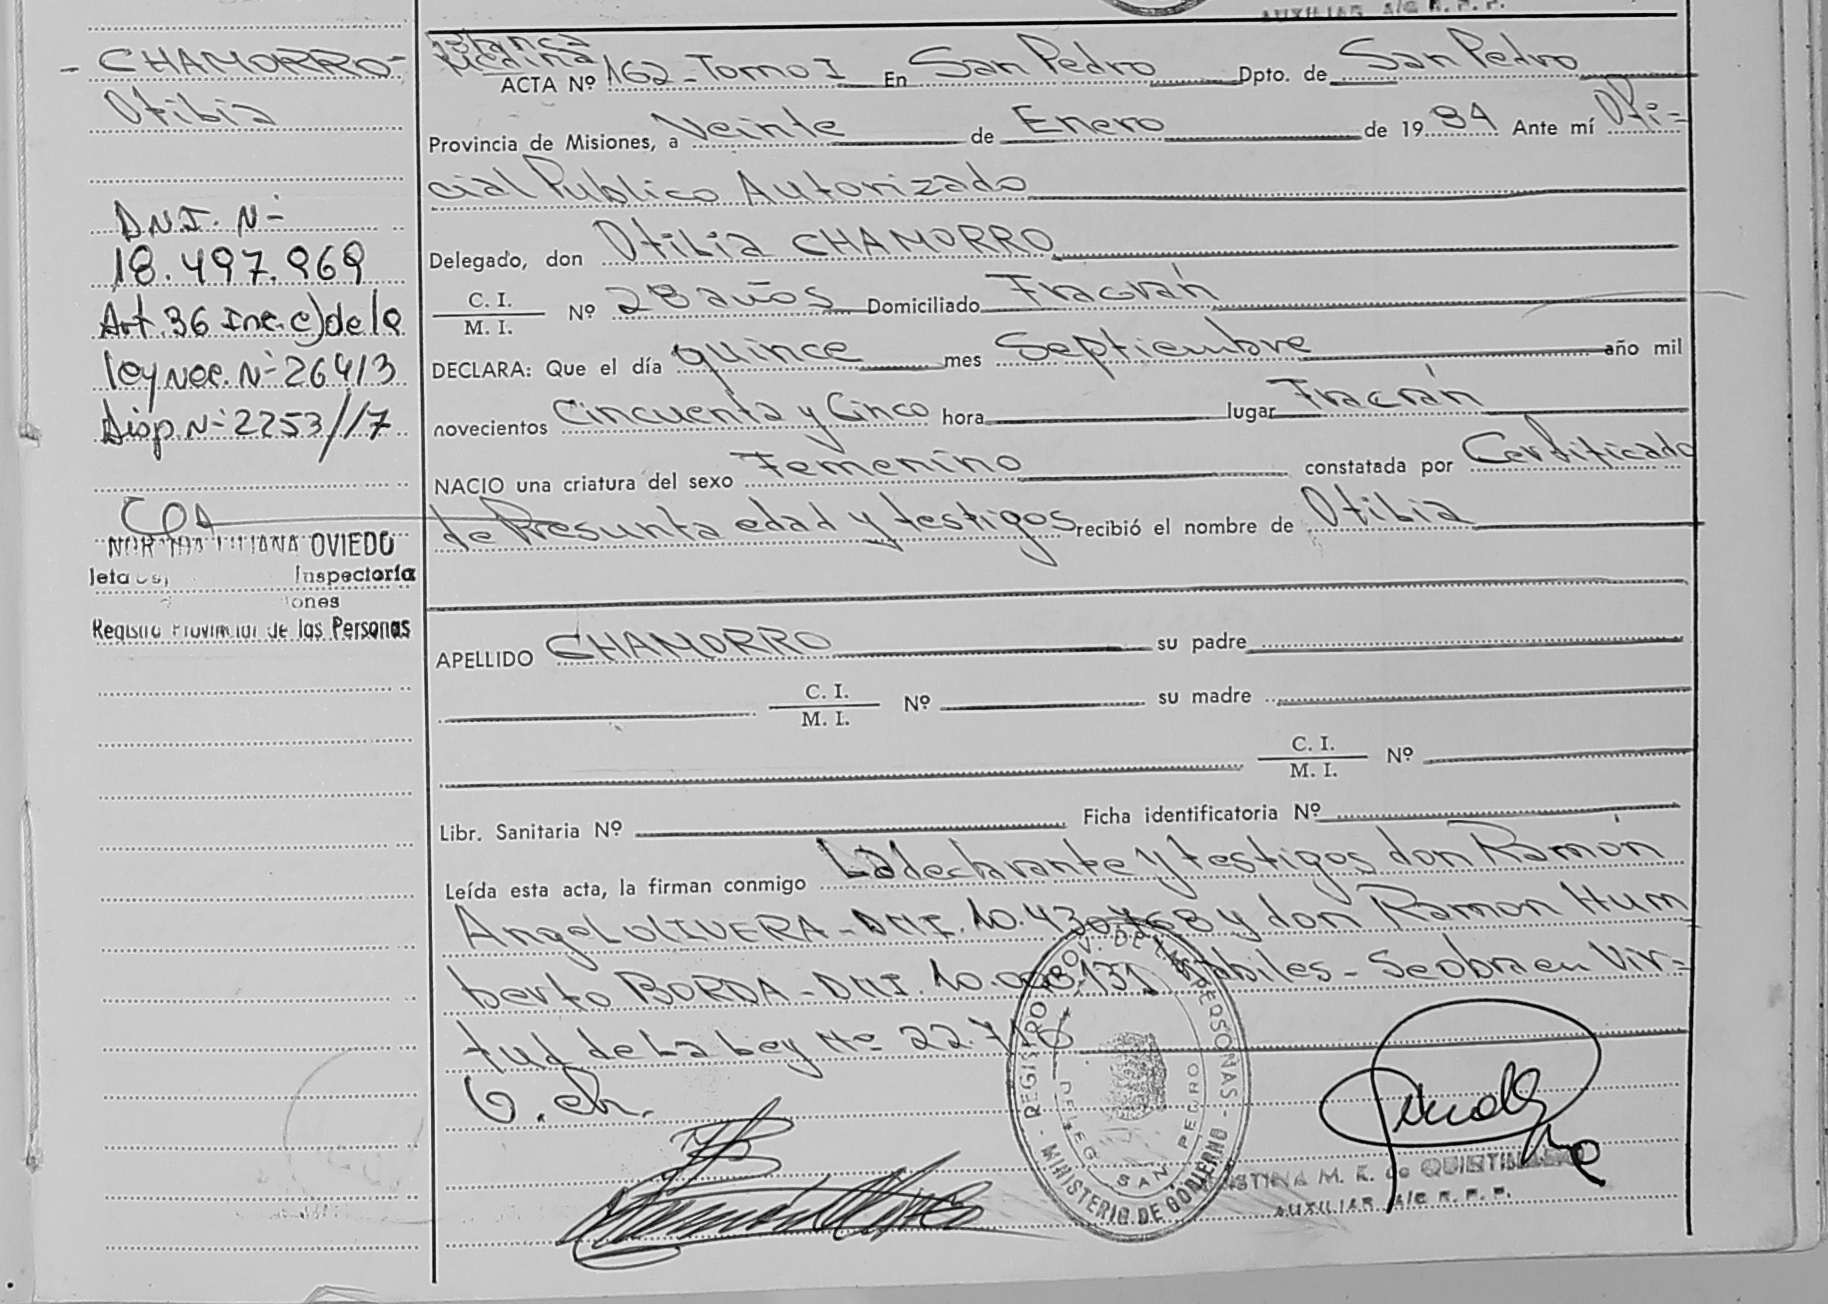 AUXILIAR A/C R. P. P.
- CHAMORRO -
Otibia
D.N.I. N-
18.497.969
Art. 36 Inc. c) de la
ley Nac. N- 26413
Disp. N- 2253/17
OVIEDO
Inspectoría
Registro Provincial de las Personas
ACTA Nº 162 - Tomo I En San Pedro Dpto. de San Pedro
Provincia de Misiones, a Veinte de Enero de 1984 Ante mí Ofi=
cial Publico Autorizado
Delegado, don Otibia CHAMORRO
C. I.
M. I. Nº 28 años Domiciliado Fracrán
DECLARA: Que el día quince mes Septiembre año mil
novecientos Cincuenta y Cinco hora lugar Fracrán
NACIO una criatura del sexo Femenino constatada por Certificado
de Presunta edad y testigos recibió el nombre de Otibia
APELLIDO CHAMORRO su padre
C. I.
M. I. Nº su madre
C. I.
M. I. Nº
Libr. Sanitaria Nº Ficha identificatoria Nº
Leída esta acta, la firman conmigo La declarante y testigos don Ramón
Angel OLIVERA - DNI. 10.430.768 y don Ramon Hum
berto BORDA - DNI. 10.003.131 Hábiles - Se obra en Vir=
tud de La Ley Nº 22.
O. ch.
REGISTRO PROV. DE LAS PERSONAS - MINISTERIO DE GOBIERNO
DELEG. SAN PEDRO
M. K. de
AUXILIAR A/C R. P. P.